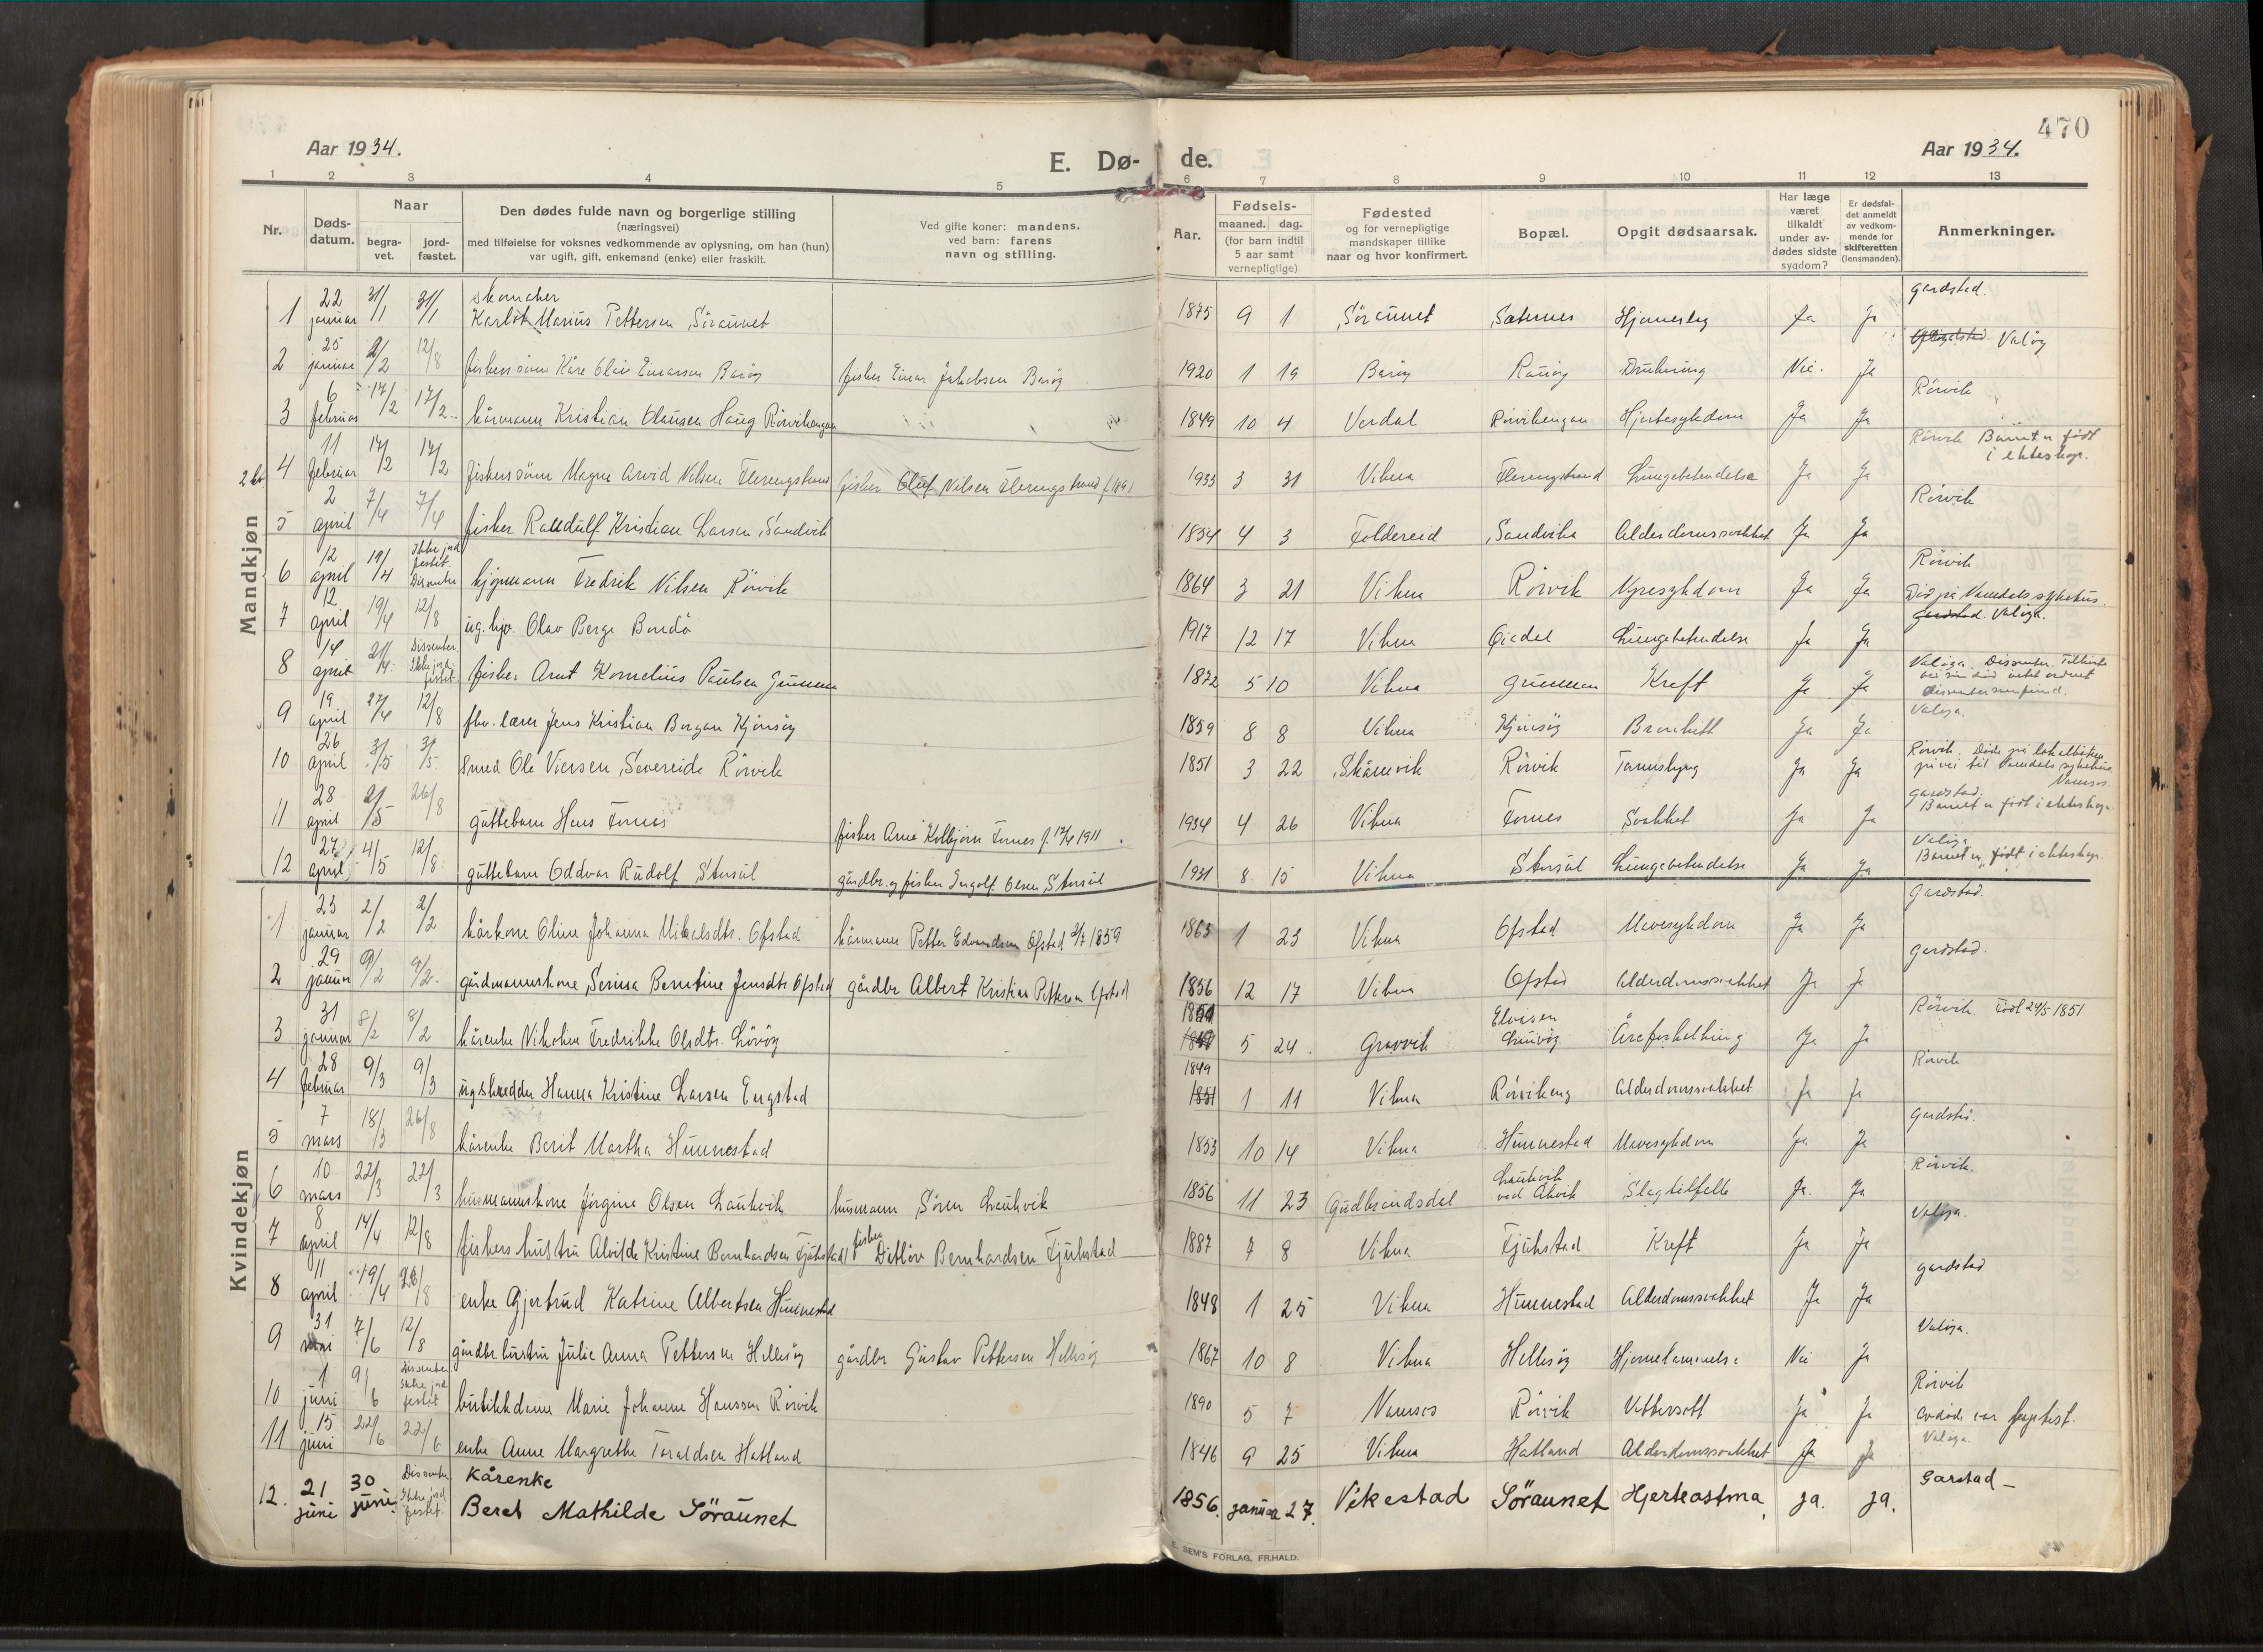 470
Aar 1934.
E. Dø- de.
Aar 1934.
1 2 3 4 5 6 7 8 9 10 11 12 13
Nr.
Døds-
datum.
Naar
begra-
vet.
jord-
fæstet.
Den dødes fulde navn og borgerlige stilling
(næringsvei)
med tilføielse for voksnes vedkommende av oplysning, om han (hun)
var ugift, gift, enkemand (enke) eller fraskilt.
Ved gifte koner: mandens,
ved barn: farens
navn og stilling.
Aar.
Fødsels-
maaned. dag.
(for barn indtil
5 aar samt
vernepligtige)
Fødested
og for vernepligtige
mandskaper tillike
naar og hvor konfirmert.
Bopæl.
Opgit dødsaarsak.
Har læge
været
tilkaldt
under av-
dødes sidste
sygdom?
Er dødsfal-
det anmeldt
av vedkom-
mende for
skifteretten
(lensmanden).
Anmerkninger.
Mandkjøn
1 22 januar 31/1 31/1 skomaker Marius Pettersen, Söraunet 1875 9 1 Söraunet Ja Ja Gardstad.
2 25 januar 2/2 12/8 fiskerssönn Kåre Olav Einarsen Baröy fisker Einar Jakobsen Baröy 1920 1 19 Baröy Drukning Nei. Ja Valöy
3 6 februar 17/2 17/2 kårmann Kristian Olausen Haug Rörvikengan 1849 10 4 Verdal Rörvikengan Hjertesykdom Ja Ja Rörvik
4 11 februar 17/2 17/2 fiskerssönn Magne Arvid Nilsen Flerengstrand fisker Oluf Nilsen Flerengstrand 1933 3 31 Vikna Flerengstrand Lungebetendelse Ja Ja Rörvik Barnet er födt
i ekteskap.
5 2 april 7/4 7/4 fisker Kristian Larsen, Sandvik 1834 4 3 Foldereid Sandvika Alderdomssvakhet Ja Ja Rörvik
6 12 april 19/4 Ikke jord
festet.
Dissenter kjöpmann Fredrik Nilsen Rörvik 1864 3 21 Vikna Rörvik Nyresykdom Ja Ja Rörvik
Död på Namdals sykehus.
7 12 april 19/4 12/8 Olav Berge Bondö 1917 12 17 Vikna Lungebetendelse Ja Ja Gardstad. Valöya.
8 14 april 21/4 Dissenter
Ikke jord
festet fisker Arnt Kornelius Paulsen 1872 5 10 Vikna Kreft Ja Ja Valöya. Dissenter.
dissentersamfund.
9 19 april 27/4 12/8 lærer Jens Kristian Borgan Kjönsöy 1859 8 8 Vikna Kjönsöy Ja Ja Valöya.
10 26 april 3/5 3/5 Smed Ole Severeide Rörvik 1851 3 22 Rörvik Ja Ja Rörvik. Döde på lokalbåten
på vei til Namdals sykehus
Namsos.
11 28 april 2/5 26/8 guttebarn Hans Fornes fisker Arne Kolbjörn Fornes f. 1911 1934 4 26 Vikna Fornes Svakhet Ja Ja Gardstad.
Barnet er födt i ekteskap.
12 27 april 4/5 12/8 guttebarn Oddvar Rudolf gårdbr. og fisker Ingolf Olsen 1931 8 15 Vikna Lungebetendelse Ja Ja Valöya
Barnet er födt i ekteskap.
Kvindekjøn
1 23 januar 2/2 2/2 kårkone Oline Johanna Mikalsdtr. Ofstad kårmann Petter Edvardsen Ofstad 1859 1863 1 23 Vikna Ofstad Mavesykdom Ja Ja Gardstad.
2 29 januar 9/2 9/2 gårdmannskone Serina Berntine Jensdtr Ofstad gårdbr Albert Kristian Pettersen Ofstad 1856 12 17 Vikna Ofstad Alderdomssvakhet Ja Ja Gardstad.
3 31 januar 8/2 8/2 kårenke Fredrikke Olsdtr. Lövöy 5 24 Gravvik Åreforkalkning Ja Ja Rörvik. Född 24/5 1851
4 28 februar 9/3 9/3 Hanna Kristine Larsen Engstad 1849
1851 1 11 Vikna Rörvikeng Alderdomssvakhet Ja Ja Rörvik
5 7 mars 18/3 26/8 kårenke Berit Martha Hunnestad 1853 10 14 Vikna Hunnestad Mavesykdom Ja Ja Gardstad.
6 10 mars 22/3 22/3 husmannskone Jörgine Olsen Laukvik husmann Sören Laukvik 1856 11 23 Gudbrandsdal Laukvik Slagtilfelle Ja. Ja Rörvik.
7 8 april 14/4 12/8 fiskers hustru Alvilde Kristine Bernhardsen Fjukstad fisker Ditlöv Bernhardsen Fjukstad 1887 7 8 Vikna Fjukstad Kreft Ja Ja Valöya.
8 11 april 19/4 26/8 enke Gjertrud Katrine Albertsen Hunnestad 1848 1 25 Vikna Hunnestad Alderdomssvakhet Ja Ja Gardstad
9 31 mai 7/6 12/8 gårdbr hustru Julie Anna Pettersen Hellesöy gårdbr Gustav Pettersen Hellesöy 1867 10 8 Vikna Hellesöy Hjernelammelse Nei Ja Valöya.
10 1 juni 9/6 Dissenter
Ikke jord
festet butikkdame Marie Johanne Hanssen Rörvik 1890 5 7 Namsos Rörvik Vattersott Ja Ja Rörvik
Avdöde var
11 15 juni 22/6 22/6 enke Anne Margrethe Toraldsen Hatland 1846 9 25 Vikna Hatland Alderdomssvakhet Ja Ja Valöya.
12. 21 juni 30 juni. Dissenter
Ikke jord
festet. Kårenke
Beret Mathilde Söraunet 1856. januar 27. Vikestad Söraunet Hjerteastma, ja. ja. Garstad –
E. SEM'S FORLAG, FR.HALD.